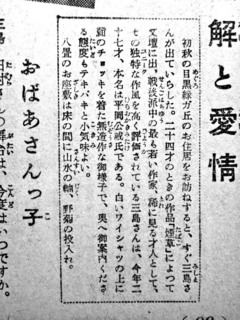 解と愛情
初秋の目黒緑ガ丘のお住居をお訪ねすると、すぐ三島さ
んが出ていらした。二十四才のときの作品『煙草』によって
文壇に出、戦後派中の最も若い作家、稀に見る才人として、
その独特な作風を高く評価されている三島さんは、今年二
十七才、本名は平岡公威氏である。白いワイシャツの上に
のチョッキを着た無造作な御様子で、奥へ御案内くださ
る態度もテキパキと小気味よい。
八畳のお座敷は床の間に山水の軸、野菊の投入れ。
おばあさんっ子
三島
は、今度はいつですか。